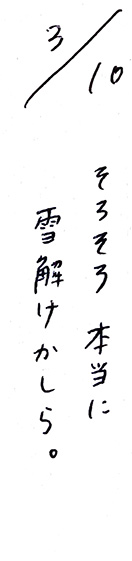 3/10
そろそろ 本当に
雪解けかしら。